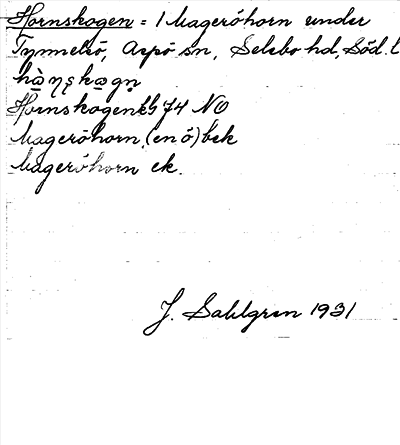 Hornskogen = 1 Mageröhorn under
Tynnelsö, Aspö sn, Selebo hd, Söd. l
Hornskogen bl 74 NO
Mageröhorn (en ö) bek
Mageröhorn ek.
J. Sahlgren 1931